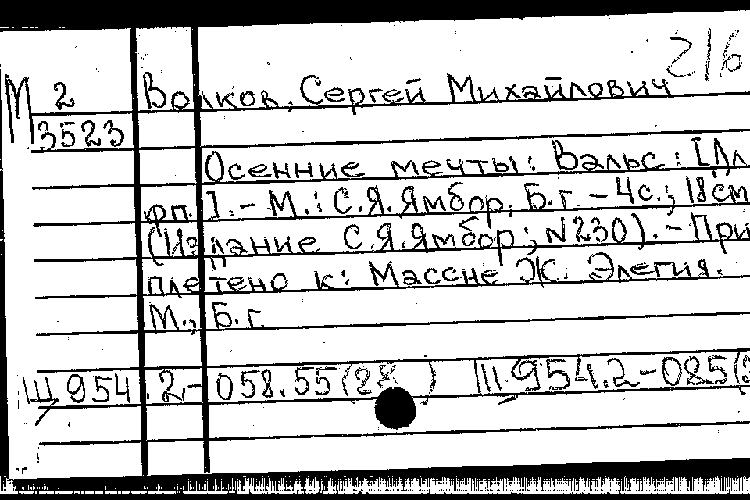 216
М 2 Волков, Сергей Михайлович
3523
Осенние мечты: Вальс: [Дл
фп.]. - М.: С.Я.Ямбор, Б.г. - 4с.; 18см
(Издание С.Я.Ямбор; N230). - При
плетено к: Массне Ж. Элегия.
М., Б.г.
Ш 954.2-058.55(28 ) Ш 954.2-085(